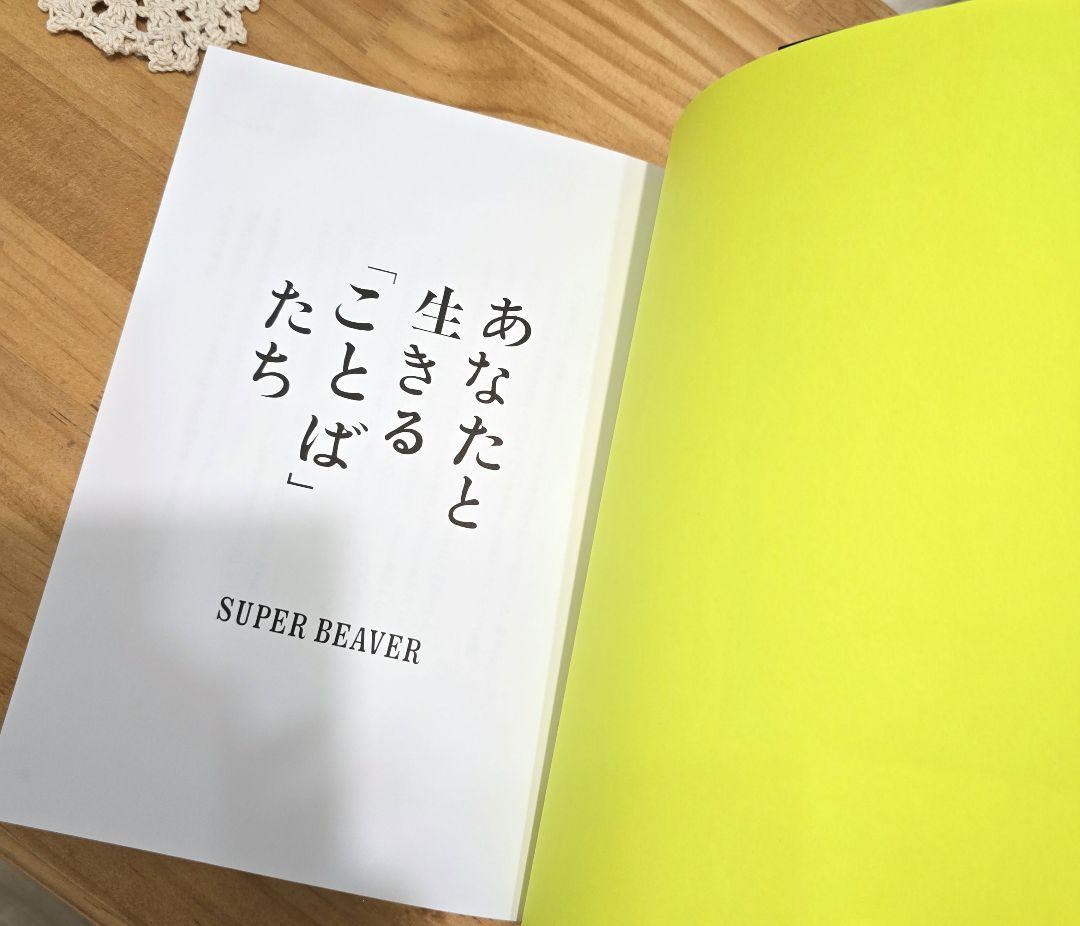 あなたと
生きる
「ことば」
たち
SUPER BEAVER